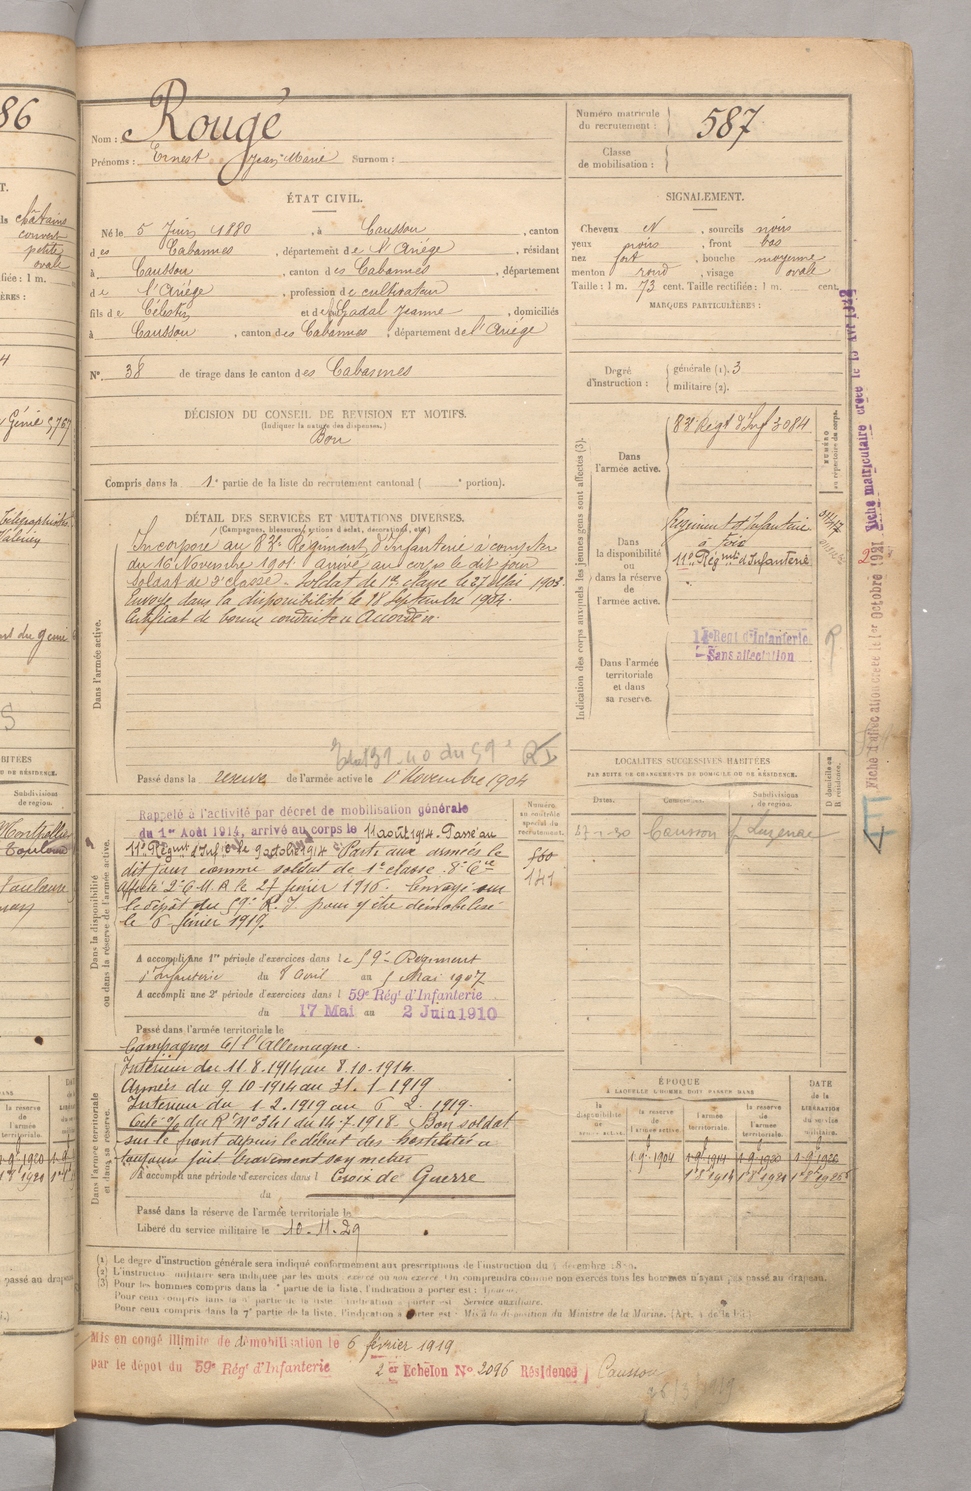 86
Nom : Rougé
Prénoms : Ernest Jean Marie Surnom :
ÉTAT CIVIL.
Né le 5 Juin 1880, à Caussou, canton
des Cabannes, département de l'Ariége, résidant
à Caussou, canton des Cabannes, département
de l'Ariége, profession de cultivateur
fils de Célestin et de Gadal Jeanne, domiciliés
à Caussou, canton des Cabannes, département de l'Ariége
N° 38 de tirage dans le canton des Cabannes
DÉCISION DU CONSEIL DE REVISION ET MOTIFS.
(Indiquer la nature des dispenses.)
Bon
Compris dans la 1e partie de la liste du recrutement cantonal ( e portion).
DÉTAIL DES SERVICES ET MUTATIONS DIVERSES.
(Campagnes, blessures, actions d'éclat, décorations, etc.)
Dans l'armée active.
Incorporé au 83e Régiment d'Infanterie à compter
du 16 Novembre 1901. arrivé au corps le dit jour
soldat de 2e classe. Soldat de 1re classe le 27 Mai 1903.
Envoyé dans la disponibilité le 18 Septembre 1904.
Certificat de bonne conduite "Accordé".
du 59e RI
Passé dans la réserve de l'armée active le 1r Novembre 1904
Dans la disponibilité
ou dans la réserve de l'armée active.
Rappelé à l'activité par décret de mobilisation générale
du 1er Août 1914, arrivé au corps le 11 août 1914. Passé au
11e Régmt d'Inf le 9 octobre 1914. Parti aux armées le
dit jour comme soldat de 1e classe. 8e Cie
affecté 2e C.M.R. le 27 février 1916. Envoyé sur
le dépôt du 59e R.I pour y être démobilisé
le 6 février 1919.
Numéro
au contrôle
spécial du
recrutement.
560
141
A accompli une 1re période d'exercices dans le 59e Régiment
d'Infanterie du 8 Avril au 5 Mai 1907
A accompli une 2e période d'exercices dans l 59e Régt d'Infanterie
du 17 Mai au 2 Juin 1910
Passé dans l'armée territoriale le
Campagnes C/ l'Allemagne.
Dans l'armée territoriale
et dans sa réserve.
Intérieur du 11.8.1914 au 8.10.1914.
Armées du 9.10.1914 au 31.1.1919
Intérieur du 1.2.1919 au 6.2.1919.
Cité o/ du Rt n° 341 du 14.7.1918. Bon soldat
sur le front depuis le début des hostilités a
toujours fait bravement son métier
A accompli une période d'exercices dans l Croix de Guerre
du au
Passé dans la réserve de l'armée territoriale le
Libéré du service militaire le 10.11.29
Numéro matricule
du recrutement : 587
Classe
de mobilisation :
SIGNALEMENT.
Cheveux N, sourcils noirs
yeux noirs, front bas
nez fort, bouche moyenne
menton rond, visage ovale
Taille : 1 m. 73 cent. Taille rectifiée : 1 m. cent.
MARQUES PARTICULIÈRES :
Degré
d'instruction :
générale (1). 3
militaire (2).
Indication des corps auxquels les jeunes gens sont affectés (3).
NUMÉRO
au répertoire du corps.
Dans
l'armée active.
83e Régt d'Inf 3084
Dans
la disponibilité
ou
dans la réserve
de
l'armée active.
Régiment d'Infanterie
à Foix
11e Régmt d'Infanterie
Dans l'armée
territoriale
et dans
sa réserve.
Regt d'Infanterie
Sans affectation
R.
LOCALITÉS SUCCESSIVES HABITÉES
PAR SUITE DE CHANGEMENTS DE DOMICILE OU DE RÉSIDENCE.
Dates.
Communes.
Subdivisions
de région.
D domicile ou
R résidence.
27-1-30 Caussou par Luzenac
ÉPOQUE
À LAQUELLE L'HOMME DOIT PASSER DANS
la
disponibilité
de
l'armée active.
la réserve
de
l'armée active.
l'armée
territoriale.
la réserve
de
l'armée
territoriale.
DATE
de la
LIBÉRATION
du service
militaire.
1.9.1904 1.9.1914 1.9.1920 1.9.1926
(1) Le degré d'instruction générale sera indiqué conformément aux prescriptions de l'instruction du 4 décembre 1889.
(2) L'instruction militaire sera indiquée par les mots : exercé ou non exercé. On comprendra comme non exercés tous les hommes n'ayant pas passé au drapeau.
(3) Pour les hommes compris dans la partie de la liste, l'indication à porter est :
Pour ceux compris dans la partie de la liste, l'indication à porter est : Service auxiliaire.
Pour ceux compris dans la 7e partie de la liste, l'indication à porter est : Mis à la disposition du Ministre de la Marine. (Art. 4 de la loi.)
Mis en congé illimité de démobilisation le 6 février 1919
par le dépôt du 59e Régt d'Infanterie 2er Echelon N° 2096 Résidence Caussou
Fiche matriculaire créée le 15 Avr 1942
Fiche d'affectation créée le 1er Octobre 1921